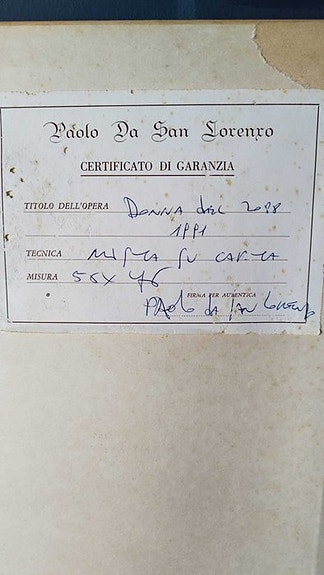 Paolo Da San Lorenzo
CERTIFICATO DI GARANZIA
TITOLO DELL'OPERA DONNA DEL 2098
1991
TECNICA MISTA SU CARTA
MISURA 56X76
FIRMA PER AUTENTICA
PAOLO DA SAN LORENZO